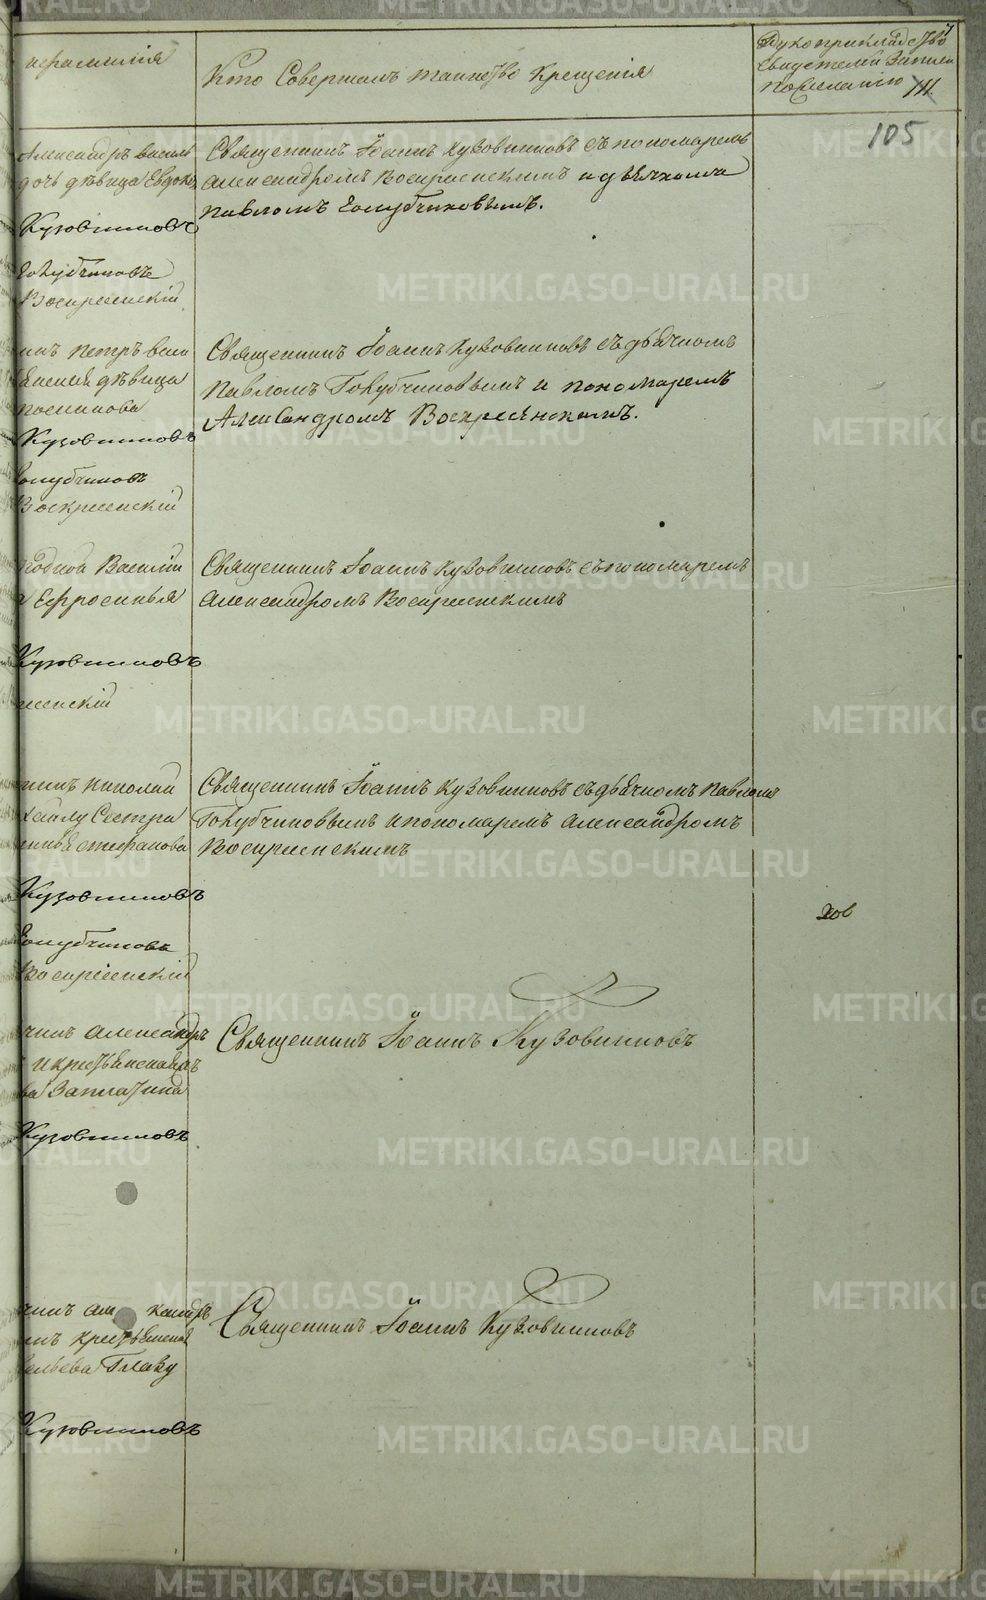 и фамилія
Кто Совершалъ таинство Крещенія
Рукоприкладство
Свидетелей Записи
по желанію
111
105
Александръ Василь
дочь дѣвица Евдок
Кузовниковъ
Голубчиковъ
Воскресенскій
Священникъ Іоаннъ Кузовниковъ съ пономаремъ
Александромъ Воскресенскимъ и дьячкомъ
Павломъ Голубчиковымъ.
инъ Петръ Васи
дѣвица
Кузовниковъ
Голубчиковъ
Воскресенскій
Священникъ Іоаннъ Кузовниковъ съ дьячкомъ
Павломъ Голубчиковымъ и пономаремъ
Александромъ Воскресенскимъ.
родной Василій
Ефросинья
Кузовниковъ
сенскій
Священникъ Іоаннъ Кузовниковъ съ пономаремъ
Александромъ Воскресенскимъ
нинъ Николай
хайлу Сестра
Стефанова
Кузовниковъ
Голубчиковъ
Воскресенскій
Священникъ Іоаннъ Кузовниковъ съ дьячкомъ Павломъ
Голубчиковымъ и пономаремъ Александромъ
Воскресенскимъ
хов
нинъ Александръ
ва Заплатина
Кузовниковъ
Священникъ Іоаннъ Кузовниковъ
Кузовниковъ
Священникъ Іоаннъ Кузовниковъ
METRIKI.GASO-URAL.RU